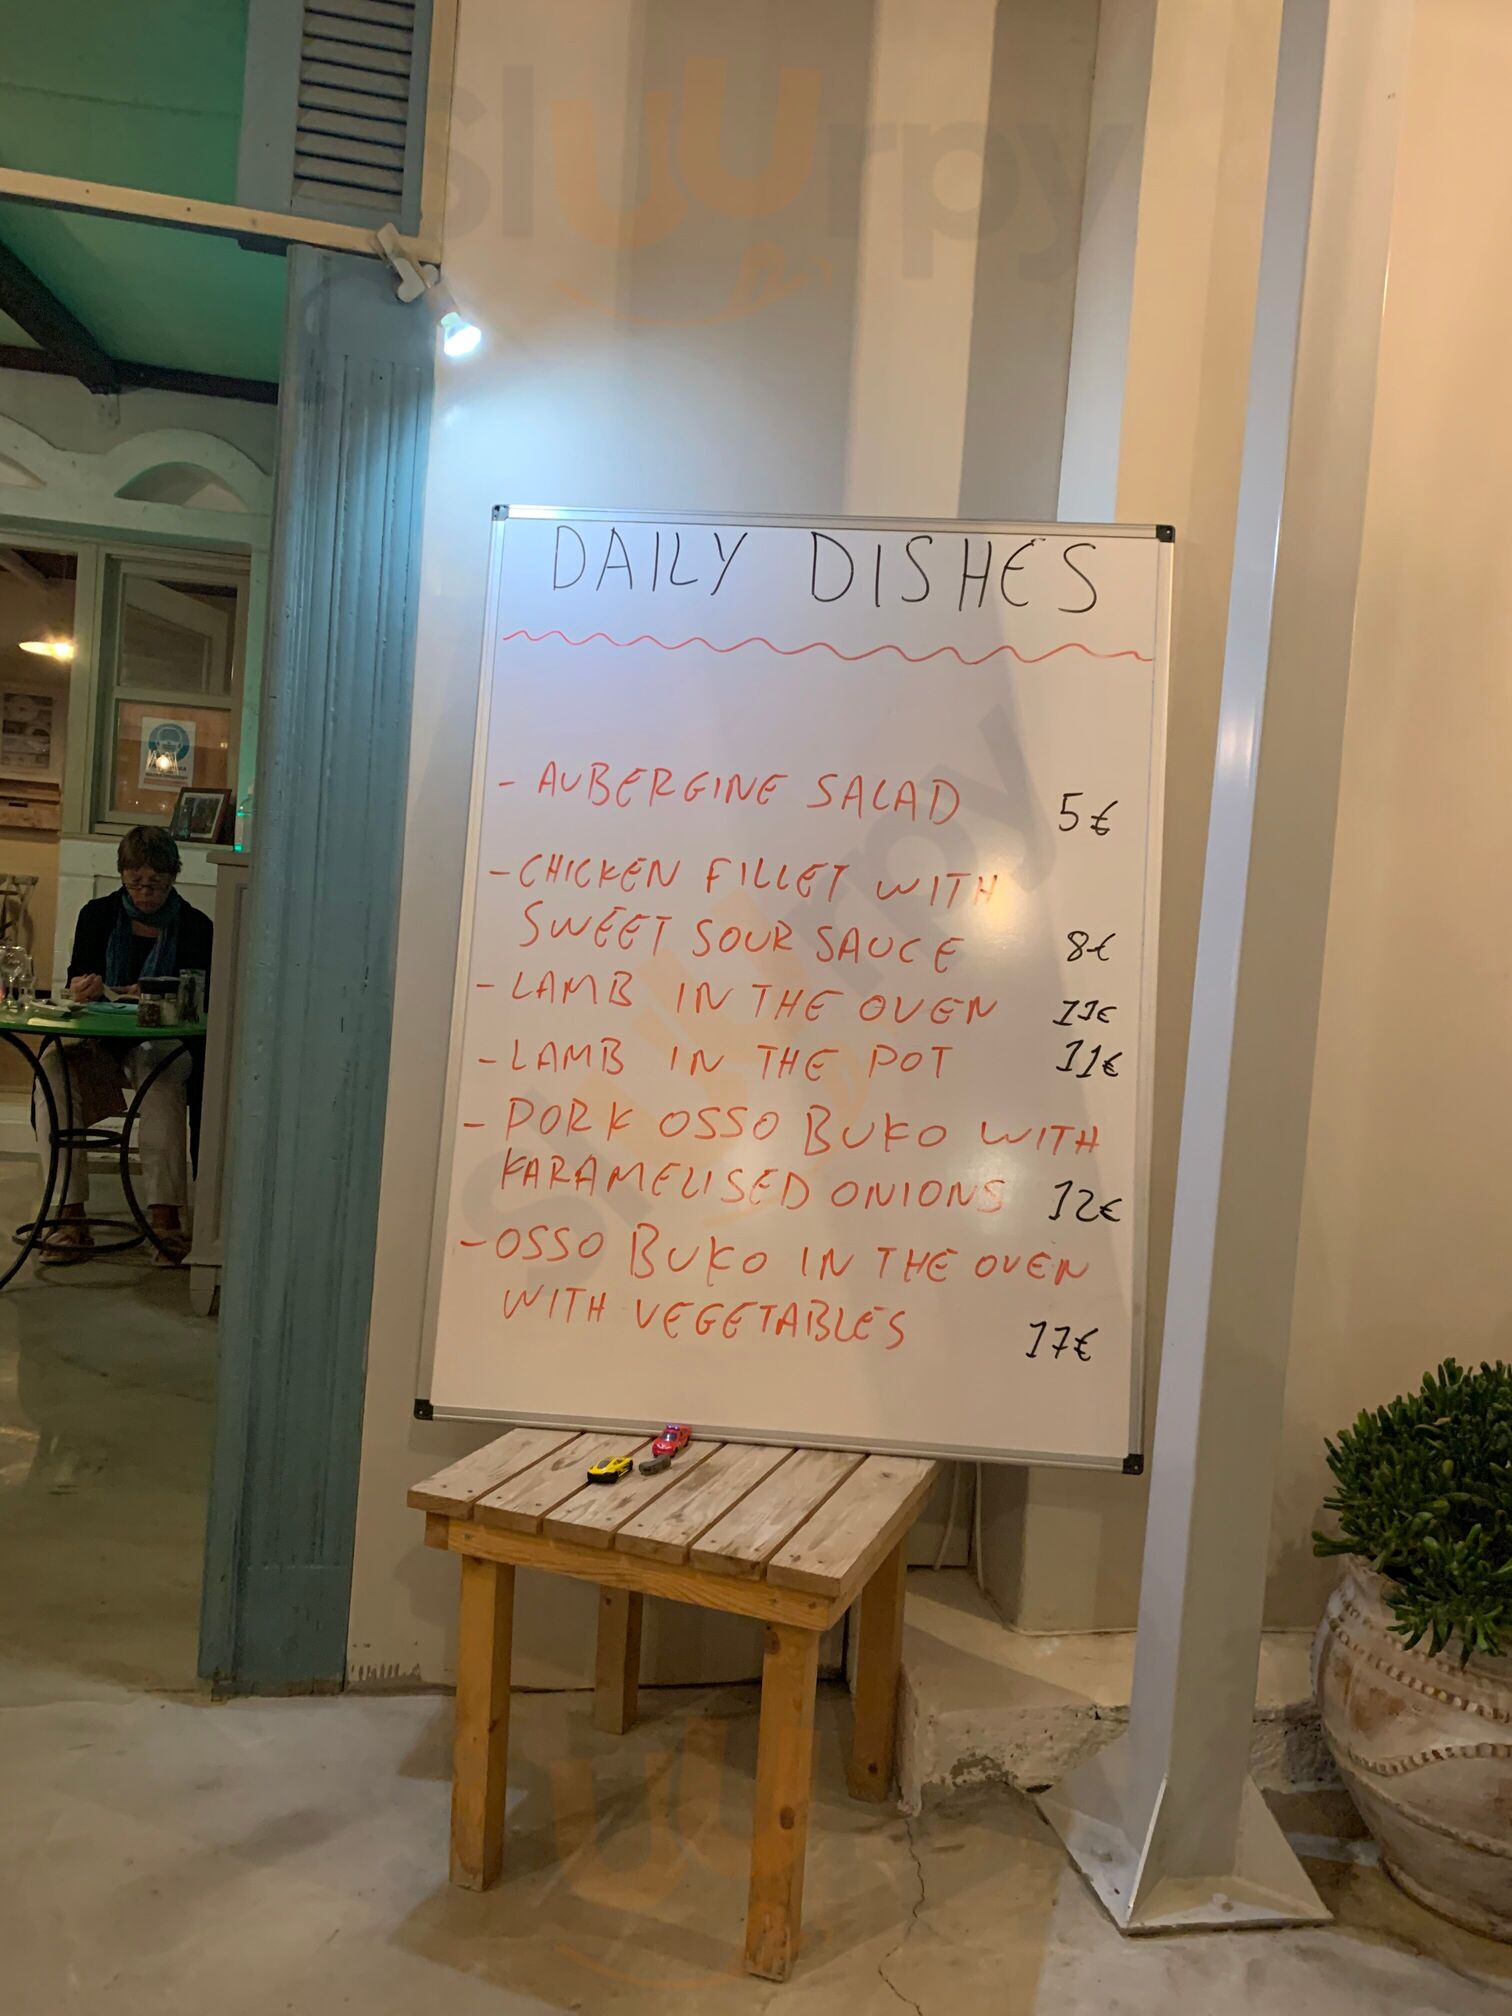 DAILY DISHES
- AUBERGINE SALAD 5€
- CHICKEN FILLET WITH
SWEET SOUR SAUCE 8€
- LAMB IN THE OVEN 11€
- LAMB IN THE POT 11€
- PORK OSSO BUKO WITH
KARAMELISED ONIONS 12€
- OSSO BUKO IN THE OVEN
WITH VEGETABLES 17€
Sluurpy
Sluurpy